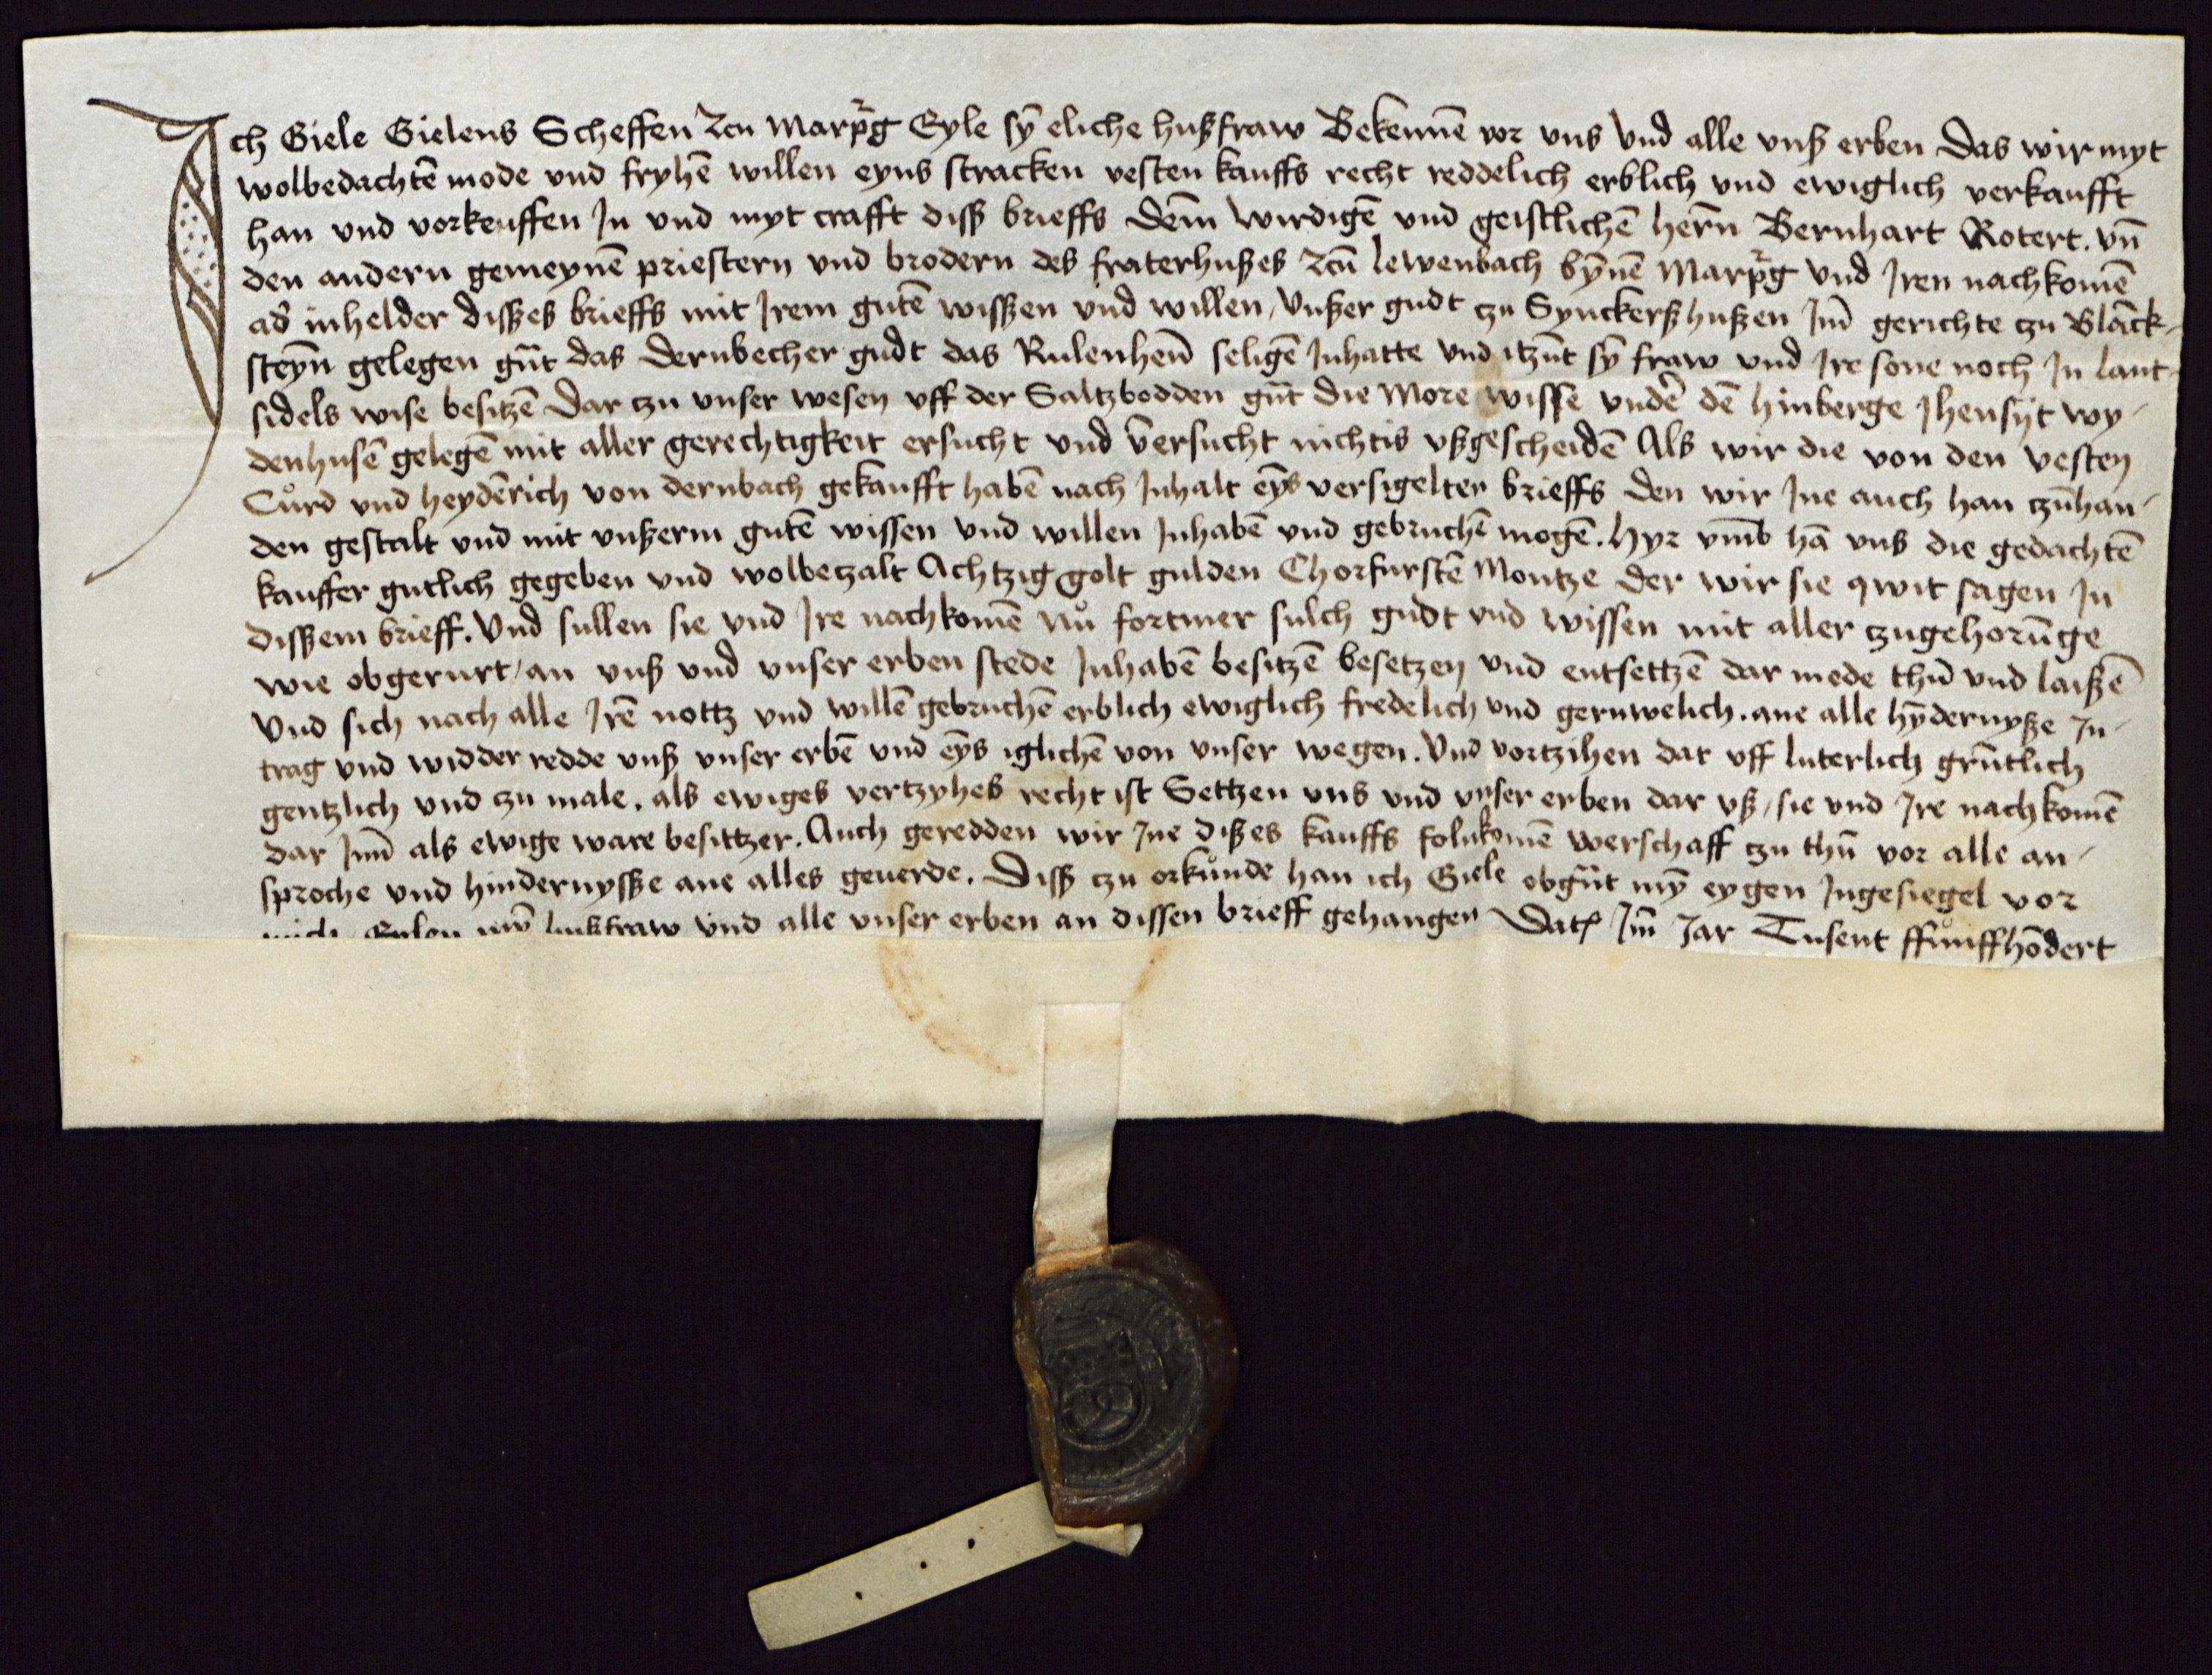 Ich Giele Gielens Scheffen zcu Marpg Eyle sȳ eliche hußfraw Bekennē vor uns und alle unß erben Das wir myt
wolbedachtē mode und fryhē willen eyns stracken vesten kauffs recht reddelich erblich und ewiglich verkaufft
han und vorkeuffen Jn und myt crafft diß brieffs Dem̄ wirdigē und geistlichē hern̄ Bernhart Rotert. un̄
den andern gemeynē priestern und brodern des fraterhußes zcū lewenbach bȳnē Marpg und Jren nachkomē
ad' inhelder dißes brieffs mit Jrem gutē wißen und willen, Unßer gudt zu Synckerßhußen Jm̄ gerichte zu Blāck-
steyn̄ gelegen gn̄t das dernbecher gudt das Rulenhen̄ seligē Jnhatte und itzūt sȳ fraw und Jre sone noch Jn lant-
sidels wise besitzē Dar zu unser wesen uff der Saltzbodden gn̄t die More wisse undē dē hinberge Jhensyt wy-
denhusē gelegē mit aller gerechtigkeit ersucht und ūersucht nichtis ußgescheidē Als wir die von den vesten
Cůrd und heydērich von dernbach gekaufft habē nach Jnhalt eȳs versigelten brieffs den wir Jne auch han zūhan-
den gestalt und mit unßerm gutē wissen und willen Jnhabē und gebruchē mogē. Hyr um̄b hā uns die gedachtē
kauffer gutlich gegeben und wolbezalt Achtzig golt gulden Chorfurstē Montze der wir sie qwit sagen Jn
dißem brieff. Und sullen sie und Jre nachkomē nů fortmer sulch gudt und wissen mit aller zugehorūge
wie obgerurt, an unß und unser erben stede Jnhabē besitzē besetzen und entsettzē dar mede thū und laißē
Und sich nach alle Jrē nottz und willē gebruchē erblich ewiglich fredelich und geruwelich. ane alle hȳdernyße Jn-
trag und widder redde unß unser erbē und eȳs iglichē von unser wegen. Und vortzihen dar uff luterlich grūtlich
gentzlich und zu male, als ewiges vertzyhes recht ist Settzen uns und unser erben dar uß, sie und Jre nachkomē
dar Jnn̄ als ewige ware besittzer. Auch geredden wir Jne dißes kauffs folnkomē werschaff zu thū vor alle an-
sproche und hindernysße ane alles geuerde. Diß zu orkůnde han ich Giele obgn̄t mȳ eygen Jngesiegel vor
mich Eylen mȳ hußfraw und alle unser erben an dissen brieff gehangen Dat' Jm̄ Jar Tusent ffůnffhōdert